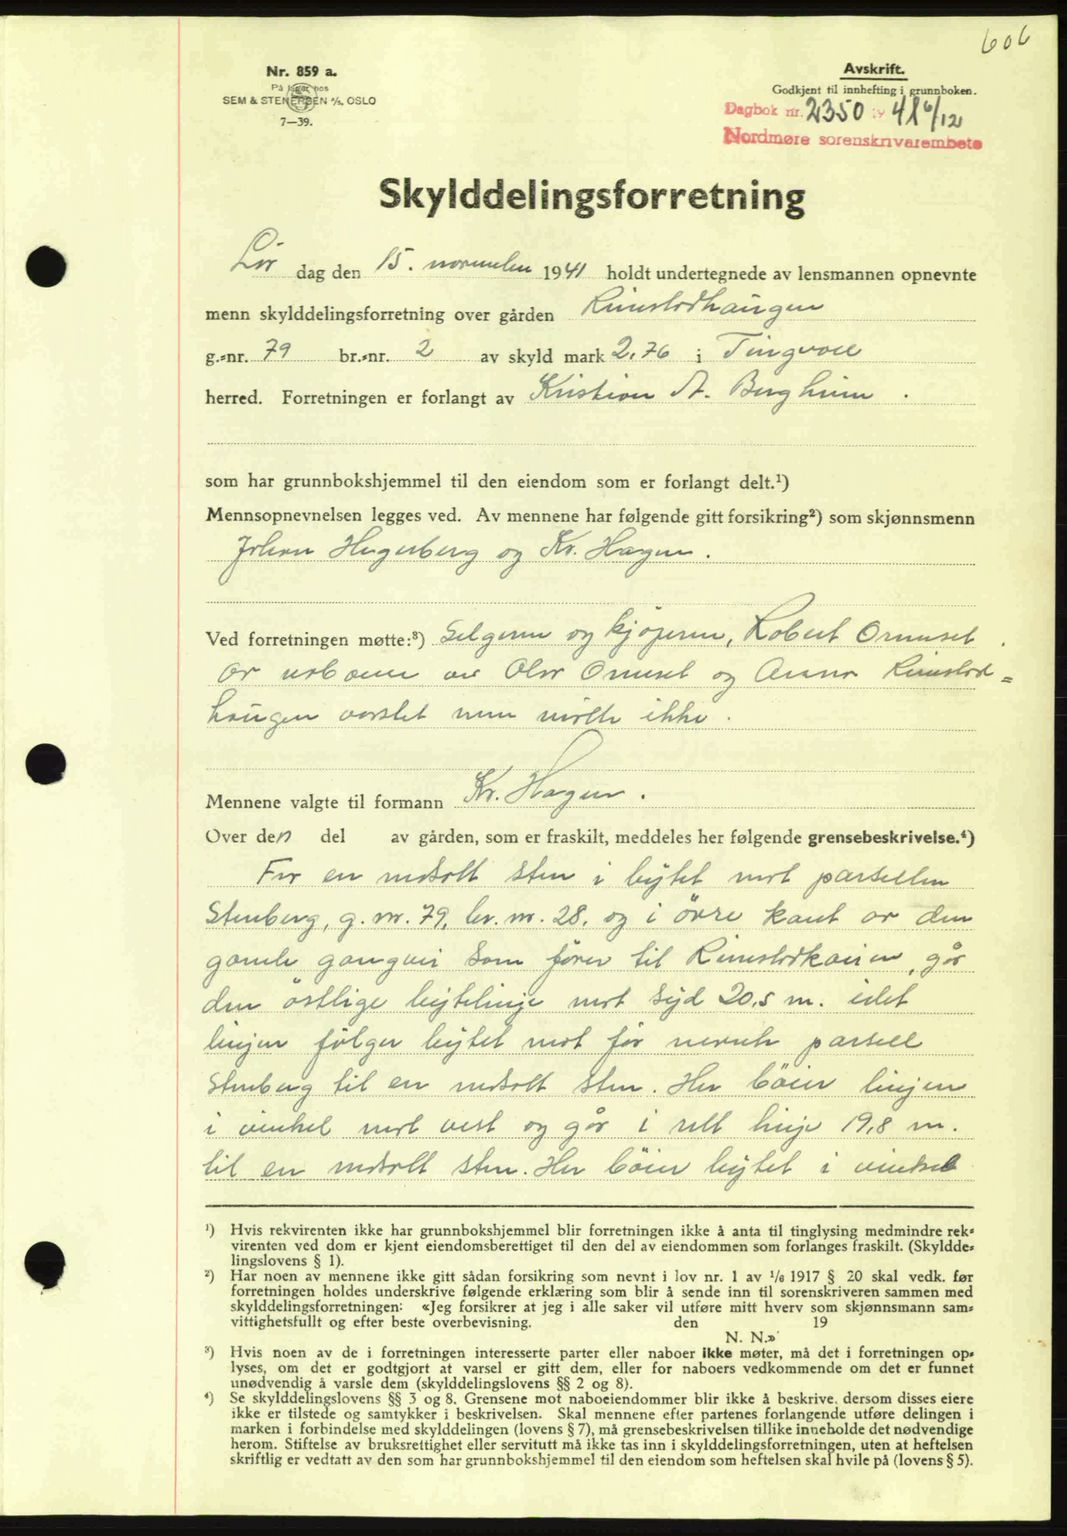 606
Nr. 859 a.
På lager hos
SEM & STENERSEN A/S, OSLO
7—39.
Avskrift.
Godkjent til innhefting i grunnboken.
Dagbok nr. 2350 19 41 6/12
Nordmøre sorenskriverembete
Skylddelingsforretning
Lør dag den 15. november 1941 holdt undertegnede av lensmannen opnevnte
menn skylddelingsforretning over gården Rimstadhaugen
g.=nr. 79 br.=nr. 2 av skyld mark 2,76 i Tingvoll
herred. Forretningen er forlangt av Kristian A. Bergheim .
som har grunnbokshjemmel til den eiendom som er forlangt delt.¹)
Mennsopnevnelsen legges ved. Av mennene har følgende gitt forsikring²) som skjønnsmenn
Johan Hegerberg og Kr. Hagen .
Ved forretningen møtte:³) Selgeren og kjøperen, Robert Ormset .
Av naboene var Olav Ormset og Anna
haugen varslet men møtte ikke .
Mennene valgte til formann Kr. Hagen .
Over den del av gården, som er fraskilt, meddeles her følgende grensebeskrivelse.⁴)
Fra en nedsatt sten i bytet mot parsellen
Stenberg, g. nr. 79, br. nr. 28, og i øvre kant av den
gamle gangvei som fører til går
den østlige bytelinje mot syd 20,5 m. idet
linjen følger bytet mot før nevnte parsell
Stenberg til en nedsatt sten. Her bøier linjen
i vinkel mot vest og går i rett linje 19,8 m.
til en nedsatt sten. Her bøier bytet i vinkel
¹) Hvis rekvirenten ikke har grunnbokshjemmel blir forretningen ikke å anta til tinglysing medmindre rek=
virenten ved dom er kjent eiendomsberettiget til den del av eiendommen som forlanges fraskilt. (Skyldde=
lingslovens § 1).
²) Har noen av mennene ikke gitt sådan forsikring som nevnt i lov nr. 1 av 1/6 1917 § 20 skal vedk. før
forretningen holdes underskrive følgende erklæring som blir å sende inn til sorenskriveren sammen med
skylddelingsforretningen: «Jeg forsikrer at jeg i alle saker vil utføre mitt hverv som skjønnsmann sam=
vittighetsfullt og efter beste overbevisning. den 19
N. N.»
³) Hvis noen av de i forretningen interesserte parter eller naboer ikke møter, må det i forretningen op=
lyses, om det er godtgjort at varsel er gitt dem, eller for naboers vedkommende om det er funnet
unødvendig å varsle dem (skylddelingslovens §§ 2 og 8).
⁴) Se skylddelingslovens §§ 3 og 8. Grensene mot naboeiendommer blir ikke å beskrive, dersom disses eiere
ikke er tilstede og samtykker i beskrivelsen. Skal mennene efter partenes forlangende utføre delingen i
marken i forbindelse med skylddelingen (lovens § 7), må grensebeskrivelsen tillike inneholde det nødvendige
herom. Stiftelse av bruksrettighet eller servitutt må ikke tas inn i skylddelingsforretningen, uten at heftelsen
skriftlig er vedtatt av den som har grunnbokshjemmel til den eiendom som heftelsen skal hvile på (lovens § 5).